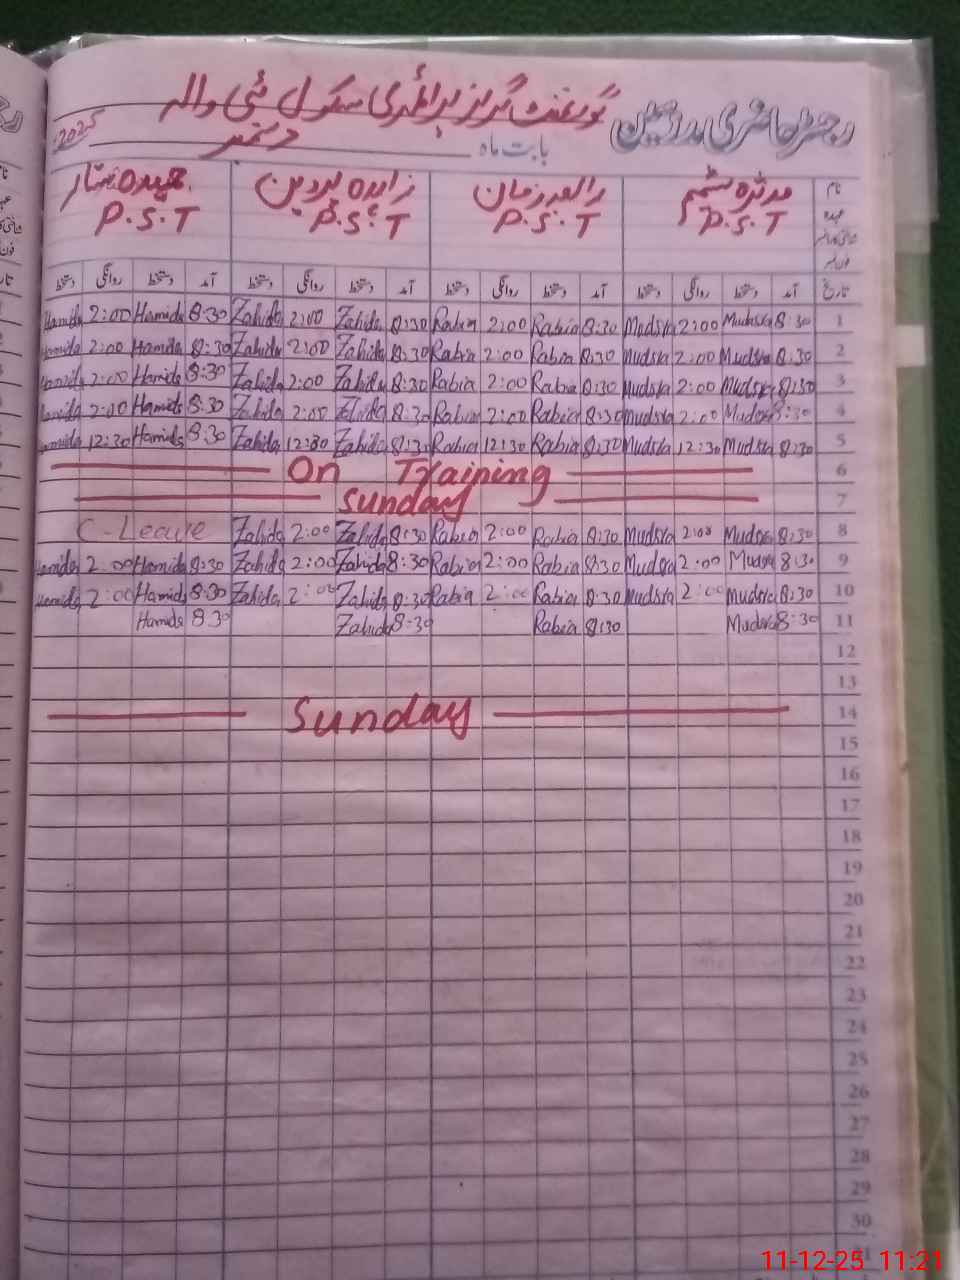 رجسٹر حاضری مدرسین گورنمنٹ گرلز پرائمری سکول
بابت ماہ دسمبر 2025
نام مدثرہ شمیم رابعہ زمان زاہدہ پروین حمیدہ ستار
عہدہ P.S.T P.S.T P.S.T P.S.T
شناختی کارڈ نمبر
فون نمبر
تاریخ آمد دستخط روانگی دستخط آمد دستخط روانگی دستخط آمد دستخط روانگی دستخط آمد دستخط روانگی دستخط
Hamida 2:00 Hamida 8:30 Zahida 2:00 Zahida 8:30 Rabia 2:00 Rabia 8:30 Mudsra 2:00 Mudsra 8:30 1
Hamida 2:00 Hamida 8:30 Zahida 2:00 Zahida 8:30 Rabia 2:00 Rabia 8:30 Mudsra 2:00 Mudsra 8:30 2
Hamida 2:00 Hamida 8:30 Zahida 2:00 Zahida 8:30 Rabia 2:00 Rabia 8:30 Mudsra 2:00 Mudsra 8:30 3
Hamida 2:00 Hamida 8:30 Zahida 2:00 Zahida 8:30 Rabia 2:00 Rabia 8:30 Mudsra 2:00 Mudsra 8:30 4
Hamida 12:30 Hamida 8:30 Zahida 12:30 Zahida 8:30 Rabia 12:30 Rabia 8:30 Mudsra 12:30 Mudsra 8:30 5
On Training 6
Sunday 7
C-Leave Zahida 2:00 Zahida 8:30 Rabia 2:00 Rabia 8:30 Mudsra 2:00 Mudsra 8:30 8
Hamida 2:00 Hamida 8:30 Zahida 2:00 Zahida 8:30 Rabia 2:00 Rabia 8:30 Mudsra 2:00 Mudsra 8:30 9
Hamida 2:00 Hamida 8:30 Zahida 2:00 Zahida 8:30 Rabia 2:00 Rabia 8:30 Mudsra 2:00 Mudsra 8:30 10
Hamida 8:30 Zahida 8:30 Rabia 8:30 Mudsra 8:30 11
12
13
Sunday 14
15
16
17
18
19
20
21
22
23
24
25
26
27
28
29
30
31
11-12-25 11:21